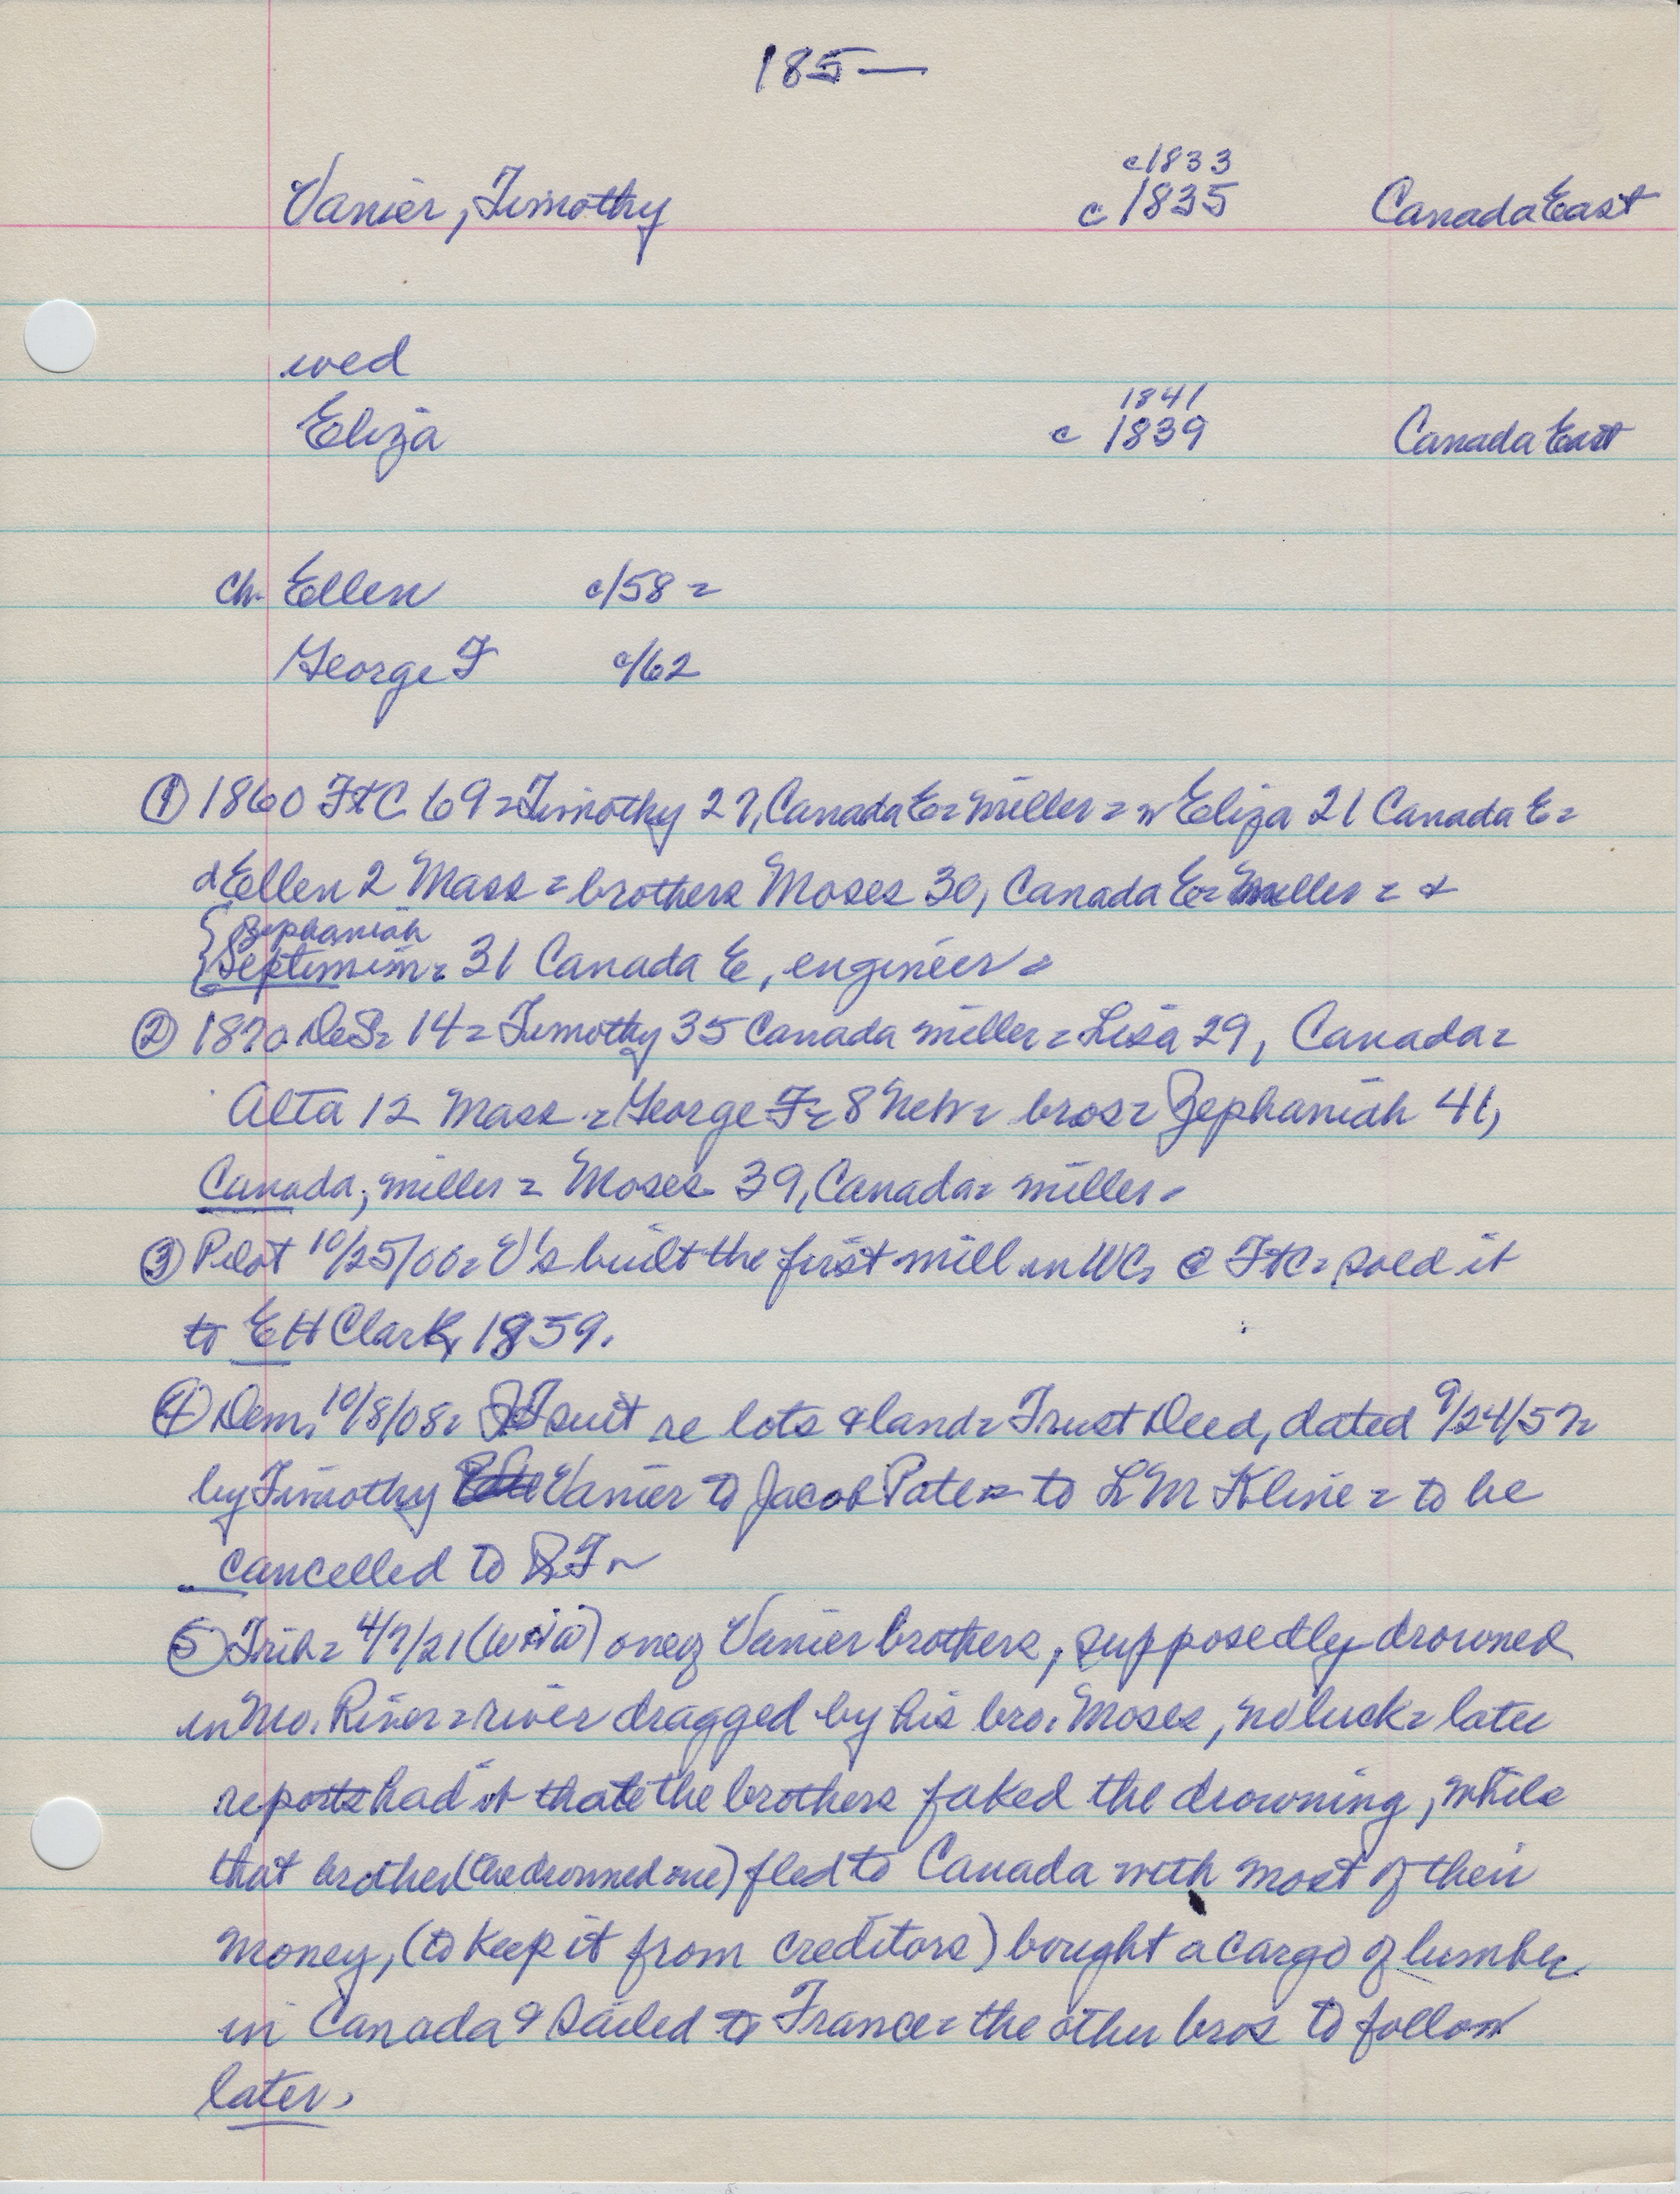 185—
c1833
Vanier, Timothy c 1835 Canada East
wed
1841
Eliza c 1839 Canada East
ch. Ellen c/58 =
George F c/62
① 1860 FtC 69 = Timothy 27, Canada E = miller = w Eliza 21 Canada E =
d Ellen 2 Mass = brothers Moses 30, Canada E = miller = &
Zephaniah
Septimim = 31 Canada E, engineer =
② 1870 DeS = 14 = Timothy 35 Canada miller = Lisa 29, Canada =
Alta 12 Mass. = George F = 8 Neb = bros = Zephaniah 41,
Canada, miller = Moses 39, Canada = miller =
③ Pilot 10/25/00 = V's built the first mill in WC, @ FtC = sold it
to EH Clark, 1859.
④ Dem, 10/8/08 = suit re lots & land = Trust Deed, dated 9/24/57 =
by Timothy Vanier to Jacob Pate = to LM Kline = to be
cancelled to
⑤ Trib = 4/7/21 (WWW) one of Vanier brothers, supposedly drowned
in Mo. River = river dragged by his bro. Moses, no luck = later
reports had it that the brothers faked the drowning, while
that brother (the drowned one) fled to Canada with most of their
money, (to keep it from creditors) bought a cargo of lumber
in Canada & sailed to France = the other bros to follow
later.